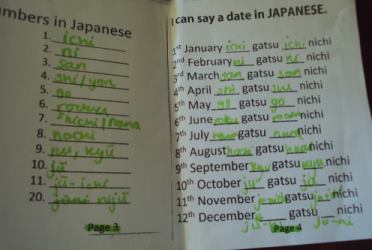 mbers in Japanese
1. ichi
2. ni
3. san
4. shi/yon
5. go
6. rokuu
7. shichi/nana
8. hachi
9. ku, kyū
10. jū
11. jū-ichi
20. nijū
Page 3
I can say a date in JAPANESE.
1st January ichi gatsu ichi nichi
2nd February ni gatsu ni nichi
3rd March san gatsu san nichi
4th April shi gatsu nichi
5th May go gatsu go nichi
6th June roku gatsu nichi
7th July gatsu nichi
8th August hachi gatsu nichi
9th September gatsu kyu nichi
10th October ju gatsu nichi
11th November gatsu nichi
12th December gatsu nichi
Page 4